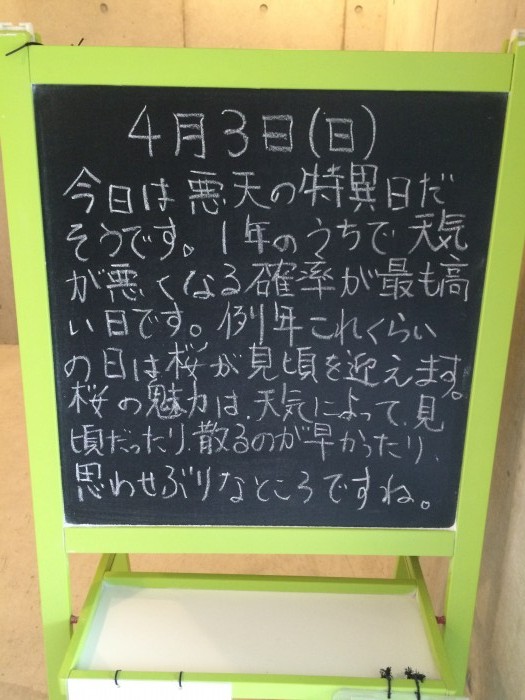 4月3日(日)
今日は悪天の特異日だ
そうです。1年のうちで天気
が悪くなる確率が最も高
い日です。例年これくらい
の日は桜が見頃を迎えます。
桜の魅力は、天気によって、見
頃だったり、散るのが早かったり、
思わせぶりなところですね。